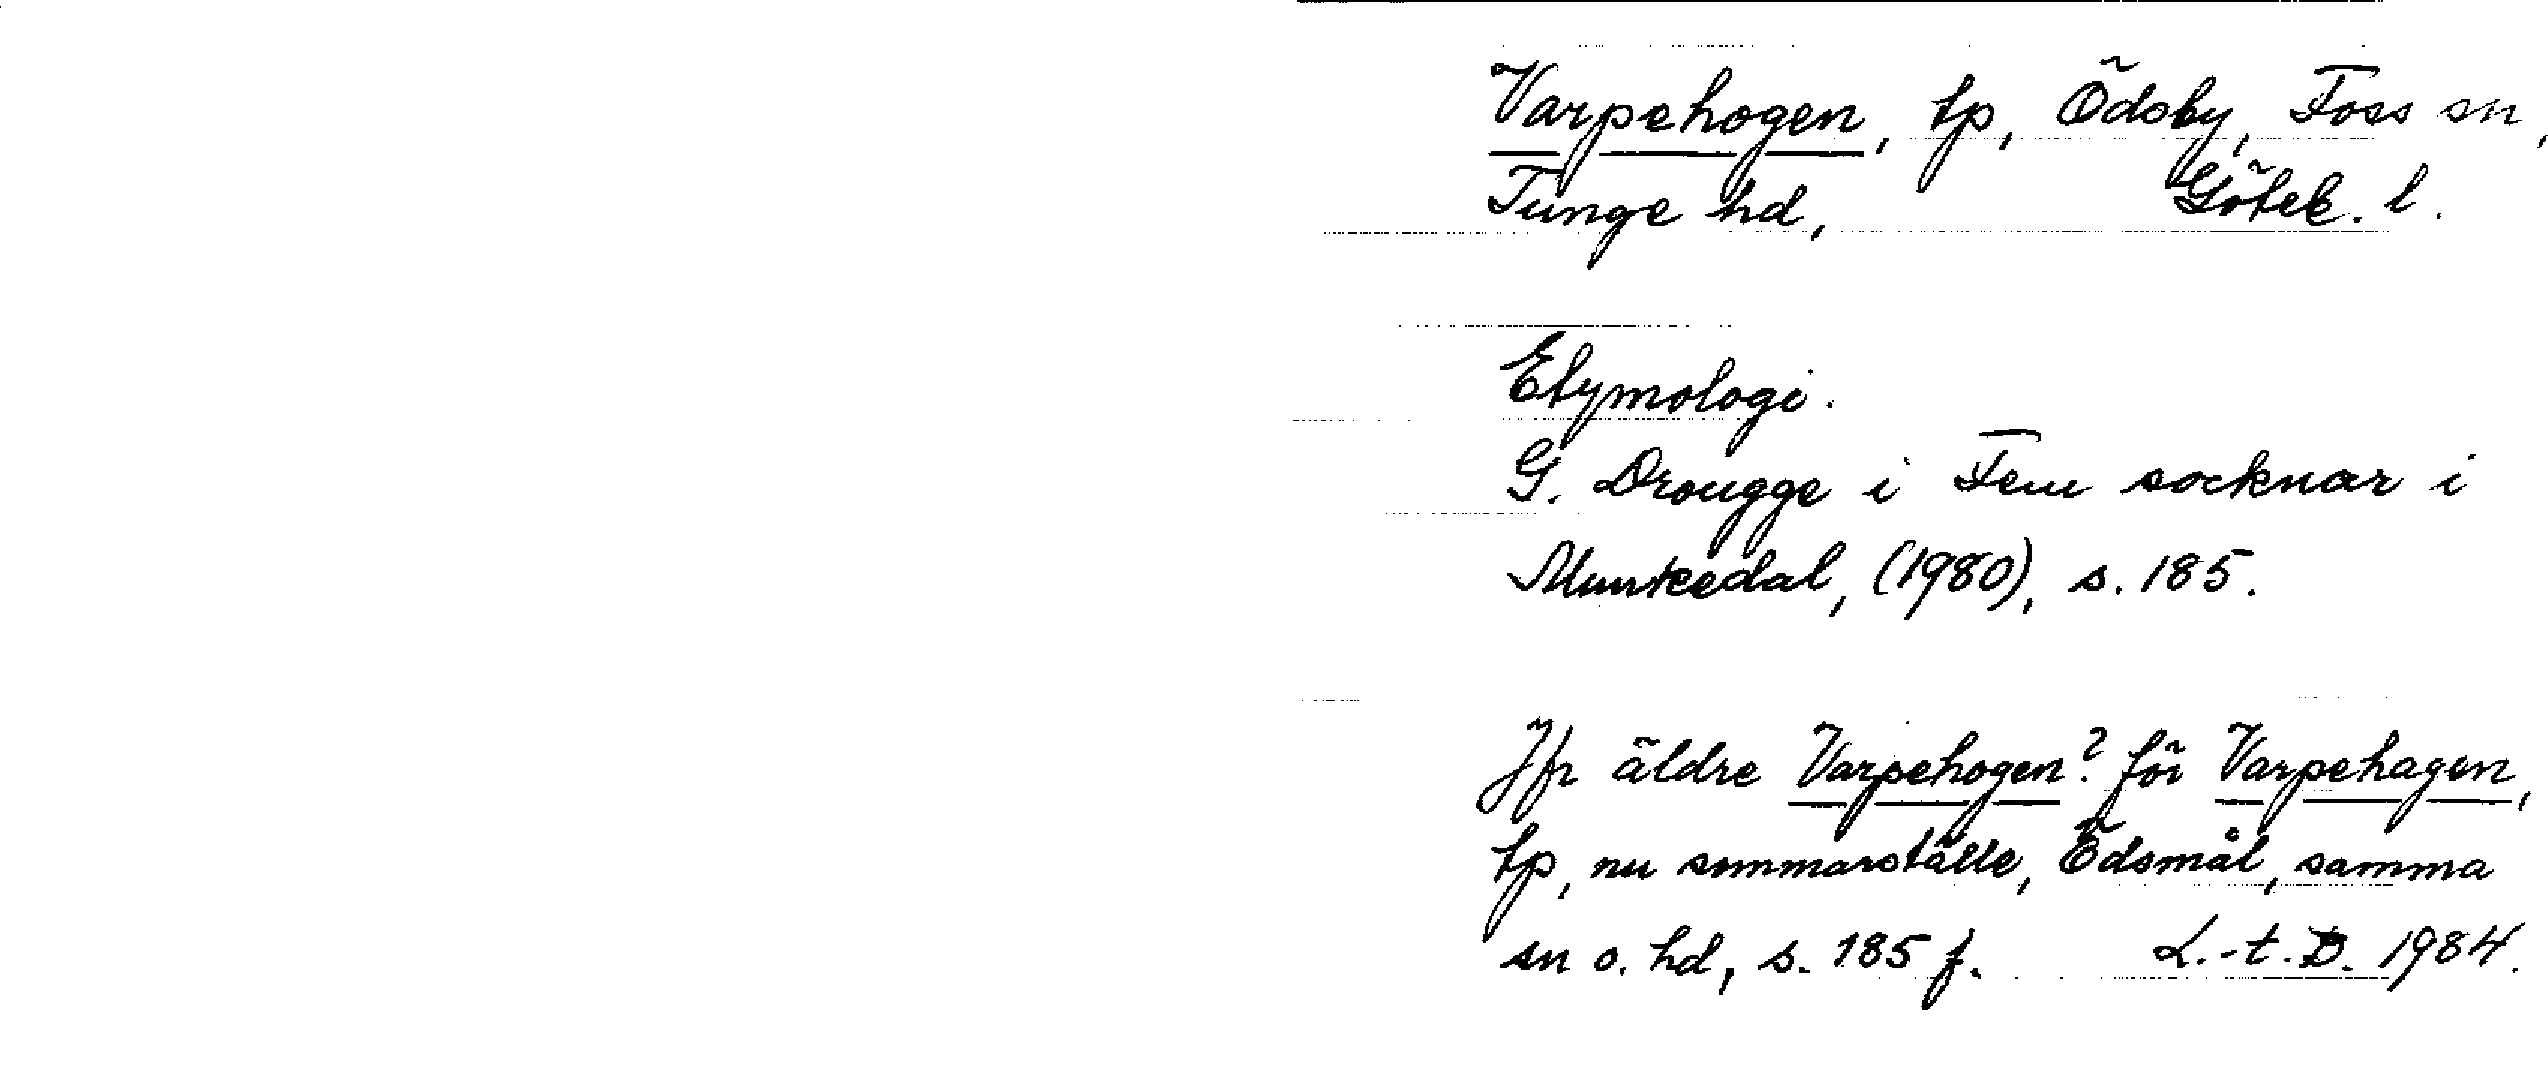 Varpehogen, tp, Ödsby, Foss sn,
Tunge hd, Göteb. l.
Etymologi.
G. Drougge i Fem socknar i
Munkedal, (1980), s. 185.
Jfr äldre Varpehogen? för Varpehagen,
tp, nu sommarställe, Ödsmål, samma
sn o. hd, s. 185 f. L.-t. D. 1984.